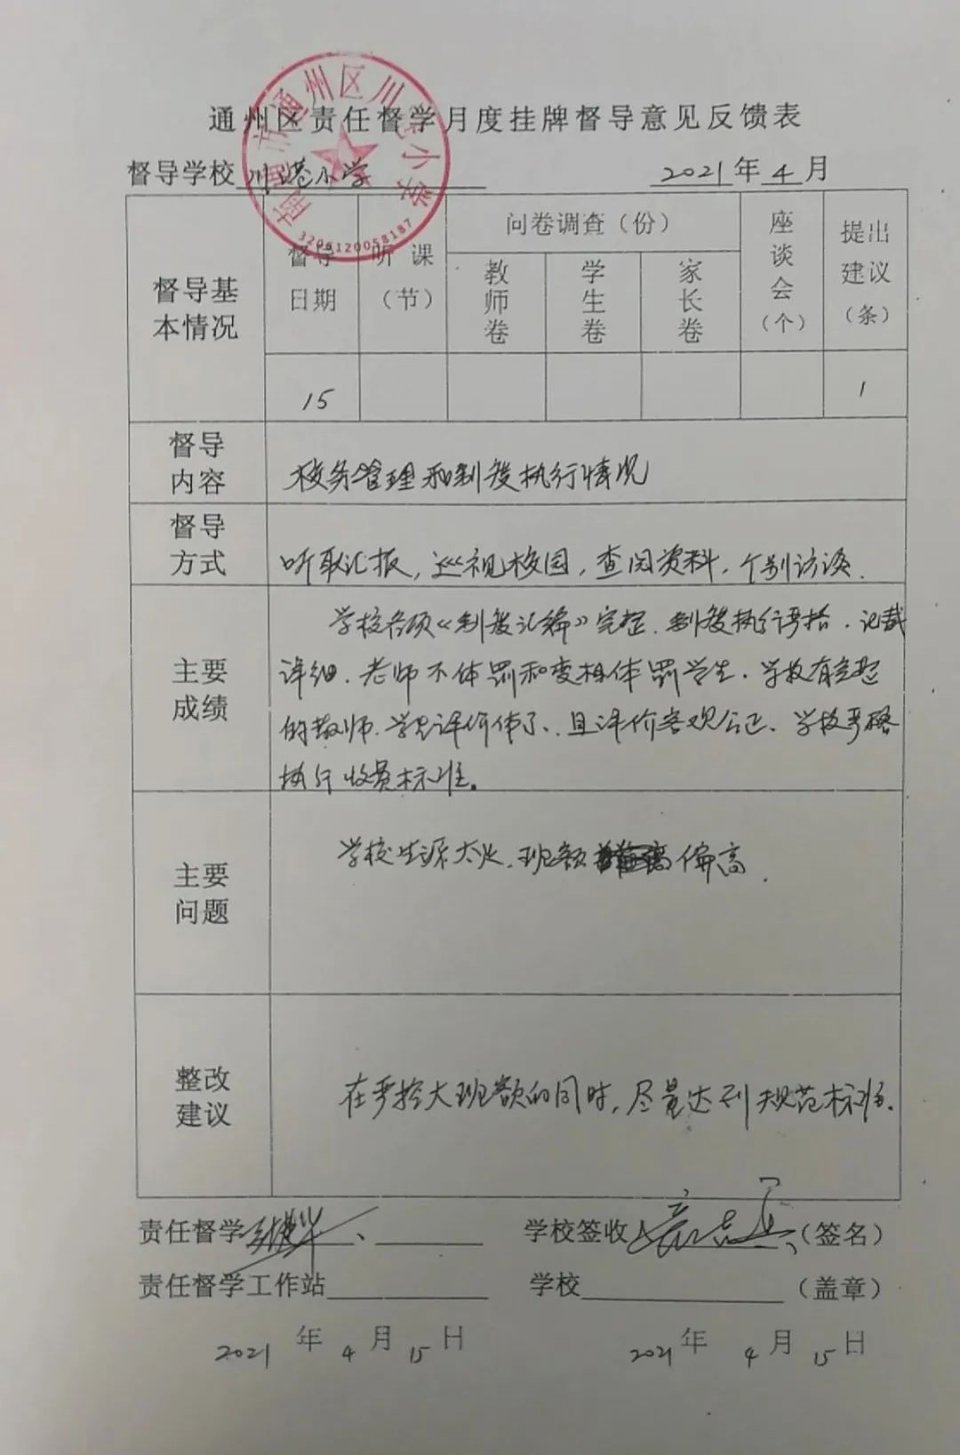 通州区责任督学月度挂牌督导意见反馈表
督导学校 川港小学 2021年4月
南通市通州区川港小学
3206120058187
督导基本情况
督导日期
听课(节)
问卷调查(份)
教师卷
学生卷
家长卷
座谈会(个)
提出建议(条)
15 1
督导内容
校务管理和制度执行情况
督导方式
听取汇报,巡视校园,查阅资料,个别访谈.
主要成绩
学校各项《制度汇编》完整.制度执行严格.记载
详细.老师不体罚和变相体罚学生.学校有
的教师.学 评价 且评价客观公正、学校严格
执行收费标准。
主要问题
学校生源太大.班额 偏高.
整改建议
在严控大班额的同时,尽量达到规范标准.
责任督学 、 学校签收人 (签名)
责任督学工作站 学校 (盖章)
2021年4月15日 2021年4月15日